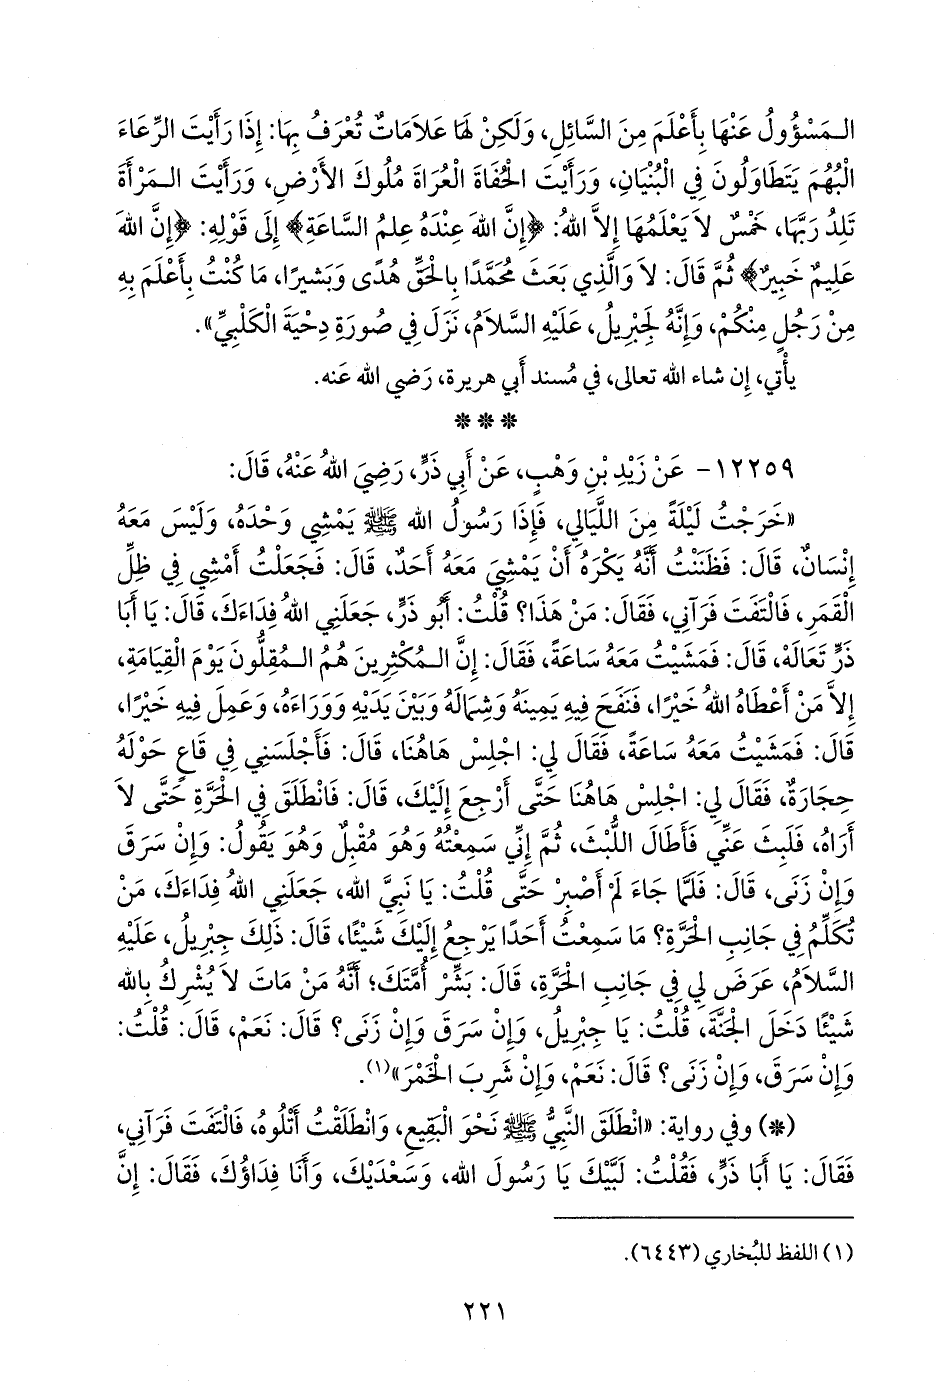 الـمَسْؤُولُ عَنْهَا بِأَعْلَمَ مِنَ السَّائِلِ، وَلَكِنْ لَهَا عَلاَمَاتٌ تُعْرَفُ بِهَا: إِذَا رَأَيْتَ الرِّعَاءَ
الْبُهُمَ يَتَطَاوَلُونَ فِي الْبُنْيَانِ، وَرَأَيْتَ الْحُفَاةَ الْعُرَاةَ مُلُوكَ الأَرْضِ، وَرَأَيْتَ الـمَرْأَةَ
تَلِدُ رَبَّهَا، خَمْسٌ لاَ يَعْلَمُهَا إِلاَّ اللهُ: ﴿إِنَّ اللهَ عِنْدَهُ عِلمُ السَّاعَةِ﴾ إِلَى قَوْلِهِ: ﴿إِنَّ اللهَ
عَلِيمٌ خَبِيرٌ﴾ ثُمَّ قَالَ: لاَ وَالَّذِي بَعَثَ مُحَمَّدًا بِالْحَقِّ هُدًى وَبَشِيرًا، مَا كُنْتُ بِأَعْلَمَ بِهِ
مِنْ رَجُلٍ مِنْكُمْ، وَإِنَّهُ لَجِبْرِيلُ، عَلَيْهِ السَّلاَمُ، نَزَلَ فِي صُورَةِ دِحْيَةَ الْكَلْبِيِّ».
يأْتي، إِن شاء الله تعالى، في مُسند أَبي هريرة، رَضي الله عَنه.
***
١٢٢٥٩- عَنْ زَيْدِ بْنِ وَهْبٍ، عَنْ أَبِي ذَرٍّ، رَضِيَ اللهُ عَنْهُ، قَالَ:
«خَرَجْتُ لَيْلَةً مِنَ اللَّيَالِي، فَإِذَا رَسُولُ الله ﷺ يَمْشِي وَحْدَهُ، وَلَيْسَ مَعَهُ
إِنْسَانٌ، قَالَ: فَظَنَنْتُ أَنَّهُ يَكْرَهُ أَنْ يَمْشِيَ مَعَهُ أَحَدٌ، قَالَ: فَجَعَلْتُ أَمْشِي فِي ظِلِّ
الْقَمَرِ، فَالْتَفَتَ فَرَآنِي، فَقَالَ: مَنْ هَذَا؟ قُلْتُ: أَبُو ذَرٍّ، جَعَلَنِي اللهُ فِدَاءَكَ، قَالَ: يَا أَبَا
ذَرٍّ تَعَالَهْ، قَالَ: فَمَشَيْتُ مَعَهُ سَاعَةً، فَقَالَ: إِنَّ الـمُكْثِرِينَ هُمُ الـمُقِلُّونَ يَوْمَ الْقِيَامَةِ،
إِلاَّ مَنْ أَعْطَاهُ اللهُ خَيْرًا، فَنَفَحَ فِيهِ يَمِينَهُ وَشِمَالَهُ وَبَيْنَ يَدَيْهِ وَوَرَاءَهُ، وَعَمِلَ فِيهِ خَيْرًا،
قَالَ: فَمَشَيْتُ مَعَهُ سَاعَةً، فَقَالَ لِي: اجْلِسْ هَاهُنَا، قَالَ: فَأَجْلَسَنِي فِي قَاعٍ حَوْلَهُ
حِجَارَةٌ، فَقَالَ لِي: اجْلِسْ هَاهُنَا حَتَّى أَرْجِعَ إِلَيْكَ، قَالَ: فَانْطَلَقَ فِي الْحَرَّةِ حَتَّى لاَ
أَرَاهُ، فَلَبِثَ عَنِّي فَأَطَالَ اللُّبْثَ، ثُمَّ إِنِّي سَمِعْتُهُ وَهُوَ مُقْبِلٌ وَهُوَ يَقُولُ: وَإِنْ سَرَقَ
وَإِنْ زَنَى، قَالَ: فَلَمَّا جَاءَ لَمْ أَصْبِرْ حَتَّى قُلْتُ: يَا نَبِيَّ الله، جَعَلَنِي اللهُ فِدَاءَكَ، مَنْ
تُكَلِّمُ فِي جَانِبِ الْحَرَّةِ؟ مَا سَمِعْتُ أَحَدًا يَرْجِعُ إِلَيْكَ شَيْئًا، قَالَ: ذَلِكَ جِبْرِيلُ، عَلَيْهِ
السَّلاَمُ، عَرَضَ لِي فِي جَانِبِ الْحَرَّةِ، قَالَ: بَشِّرْ أُمَّتَكَ؛ أَنَّهُ مَنْ مَاتَ لاَ يُشْرِكُ بِالله
شَيْئًا دَخَلَ الْجَنَّةَ، قُلْتُ: يَا جِبْرِيلُ، وَإِنْ سَرَقَ وَإِنْ زَنَى؟ قَالَ: نَعَمْ، قَالَ: قُلْتُ:
وَإِنْ سَرَقَ، وَإِنْ زَنَى؟ قَالَ: نَعَمْ، وَإِنْ شَرِبَ الْخَمْرَ»(١).
(*) وفي رواية: «انْطَلَقَ النَّبِيُّ ﷺ نَحْوَ الْبَقِيعِ، وَانْطَلَقْتُ أَتْلُوهُ، فَالْتَفَتَ فَرَآنِي،
فَقَالَ: يَا أَبَا ذَرٍّ، فَقُلْتُ: لَبَّيْكَ يَا رَسُولَ الله، وَسَعْدَيْكَ، وَأَنَا فِدَاؤُكَ، فَقَالَ: إِنَّ
(١) اللفظ للبُخاري (٦٤٤٣).
٢٢١